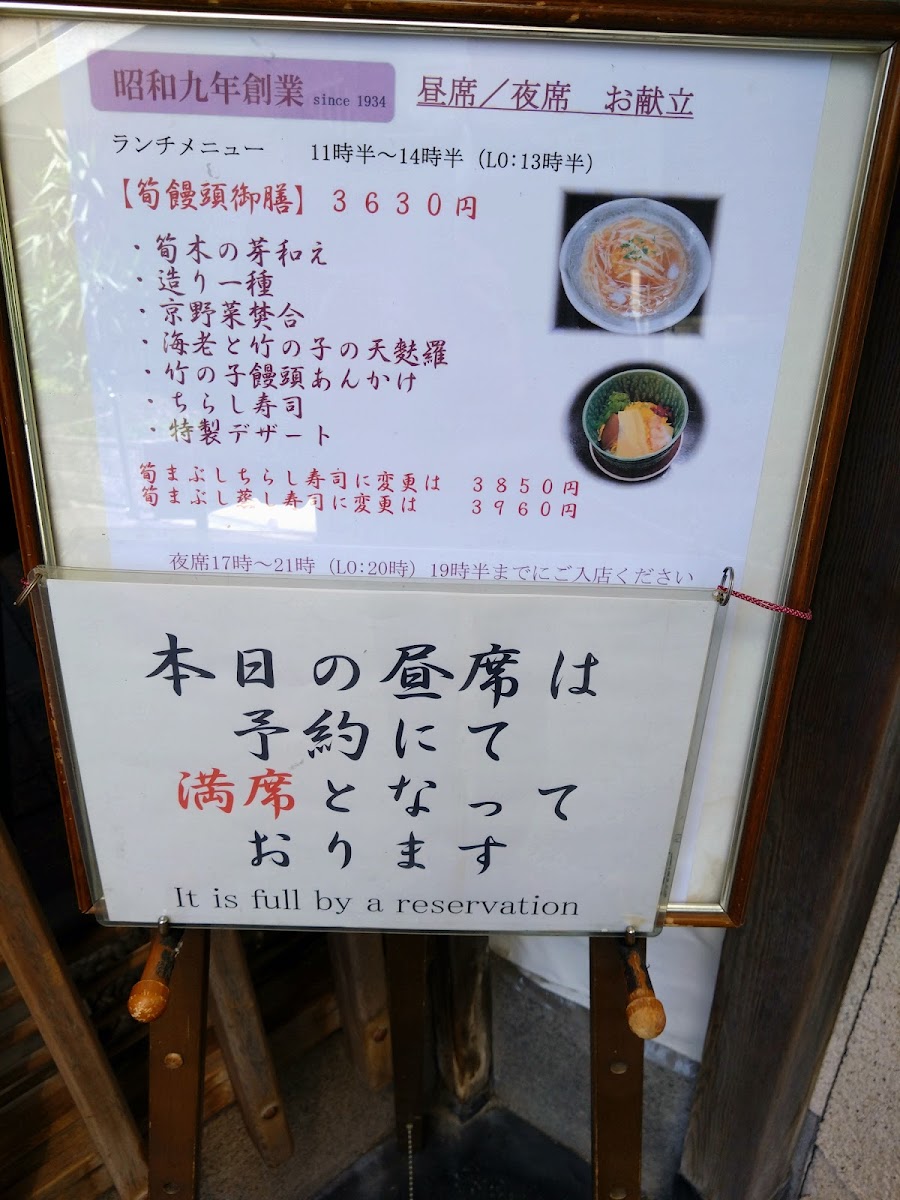 昭和九年創業 since 1934
昼席／夜席 お献立
ランチメニュー 11時半～14時半（LO:13時半）
【筍饅頭御膳】３６３０円
・筍木の芽和え
・造り一種
・京野菜焚合
・海老と竹の子の天麩羅
・竹の子饅頭あんかけ
・ちらし寿司
・特製デザート
筍まぶしちらし寿司に変更は ３８５０円
筍まぶし蒸し寿司に変更は ３９６０円
夜席17時～21時（LO:20時）19時半までにご入店ください
本日の昼席は
予約にて
満席となって
おります
It is full by a reservation